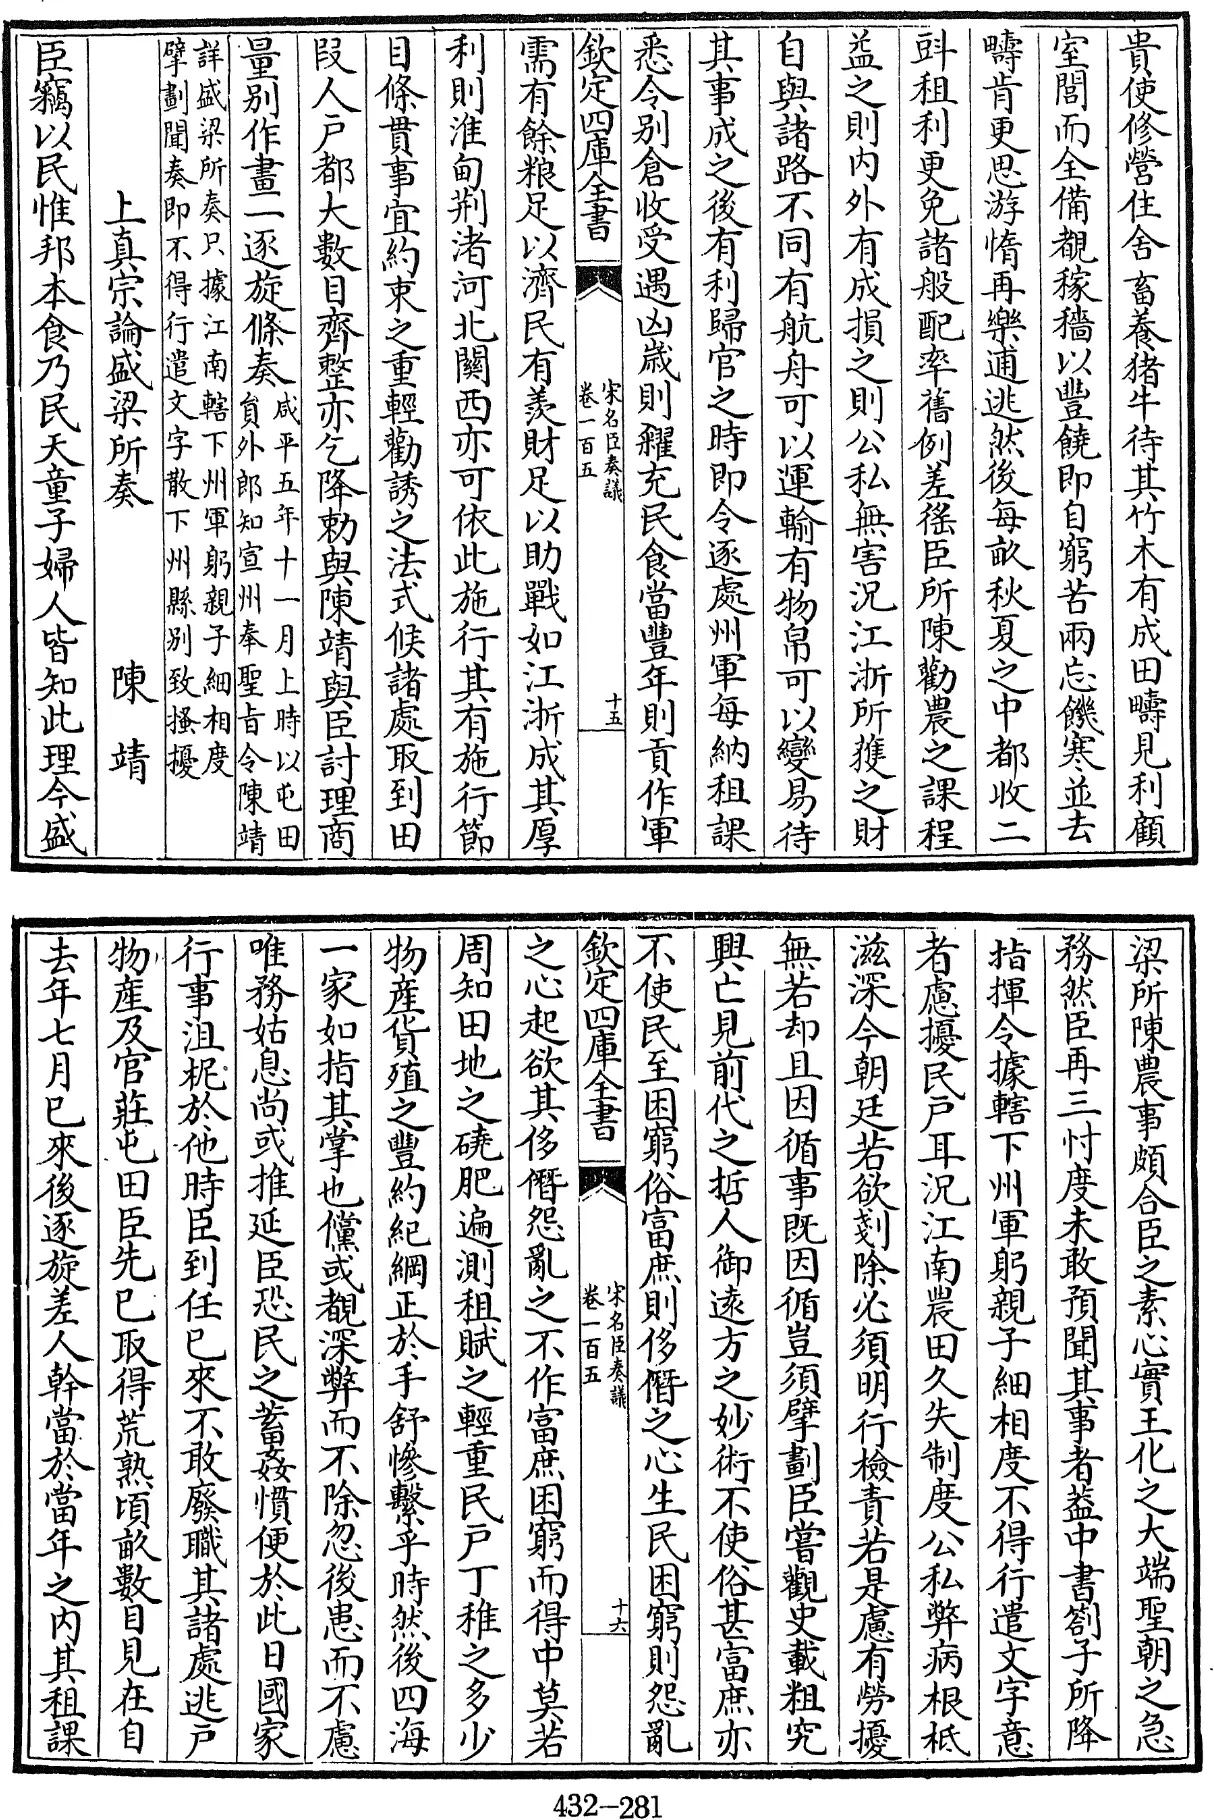 貴使修營住舍畜養猪牛待其竹木有成田疇見利顧
室閭而全備覩稼穡以豐饒即自窮苦兩忘饑寒並去
疇肯更思游惰再樂逋逃然後每畝秋夏之中都收二
㪷租利更免諸般配率舊例差徭臣所陳勸農之課程
益之則内外有成損之則公私無害況江浙所獲之財
自與諸路不同有航舟可以運輸有物帛可以變易待
其事成之後有利歸官之時即令逐處州軍每納租課
悉令别倉收受遇凶歲則糴充民食當豐年則貢作軍
欽定四庫全書
宋名臣奏議
卷一百五
十五
需有餘粮足以濟民有羨財足以助戰如江浙成其厚
利則淮甸荆渚河北關西亦可依此施行其有施行節
目條貫事宜約束之重輕勸誘之法式候諸處取到田
段人户都大數目齊整亦乞降勅與陳靖與臣討理商
量别作畫一逐旋條奏
咸平五年十一月上時以屯田
員外郎知宣州奉聖旨令陳靖
詳盛梁所奏只據江南轄下州軍躬親子細相度
擘劃聞奏即不得行遣文字散下州縣别致搔擾
上真宗論盛梁所奏 陳靖
臣竊以民惟邦本食乃民天童子婦人皆知此理今盛
梁所陳農事頗合臣之素心實王化之大端聖朝之急
務然臣再三忖度未敢預聞其事者葢中書劄子所降
指揮令據轄下州軍躬親子細相度不得行遣文字意
者慮擾民户耳況江南農田久失制度公私弊病根柢
滋深今朝廷若欲剗除必須明行檢責若是慮有勞擾
無若却且因循事既因循豈須擘劃臣嘗觀史載粗究
興亡見前代之哲人御遠方之妙術不使俗甚富庶亦
不使民至困窮俗富庶則侈僭之心生民困窮則怨亂
欽定四庫全書
宋名臣奏議
卷一百五
十六
之心起欲其侈僭怨亂之不作富庶困窮而得中莫若
周知田地之磽肥遍測租賦之輕重民户丁稚之多少
物産貨殖之豐約紀綱正於手舒慘繫乎時然後四海
一家如指其掌也儻或覩深弊而不除忽後患而不慮
唯務姑息尚或推延臣恐民之蓄姦慣便於此日國家
行事沮柅於他時臣到任已來不敢廢職其諸處逃户
物産及官莊屯田臣先已取得荒熟頃畝數目見在自
去年七月已來後逐旋差人幹當於當年之内其租課
432-281